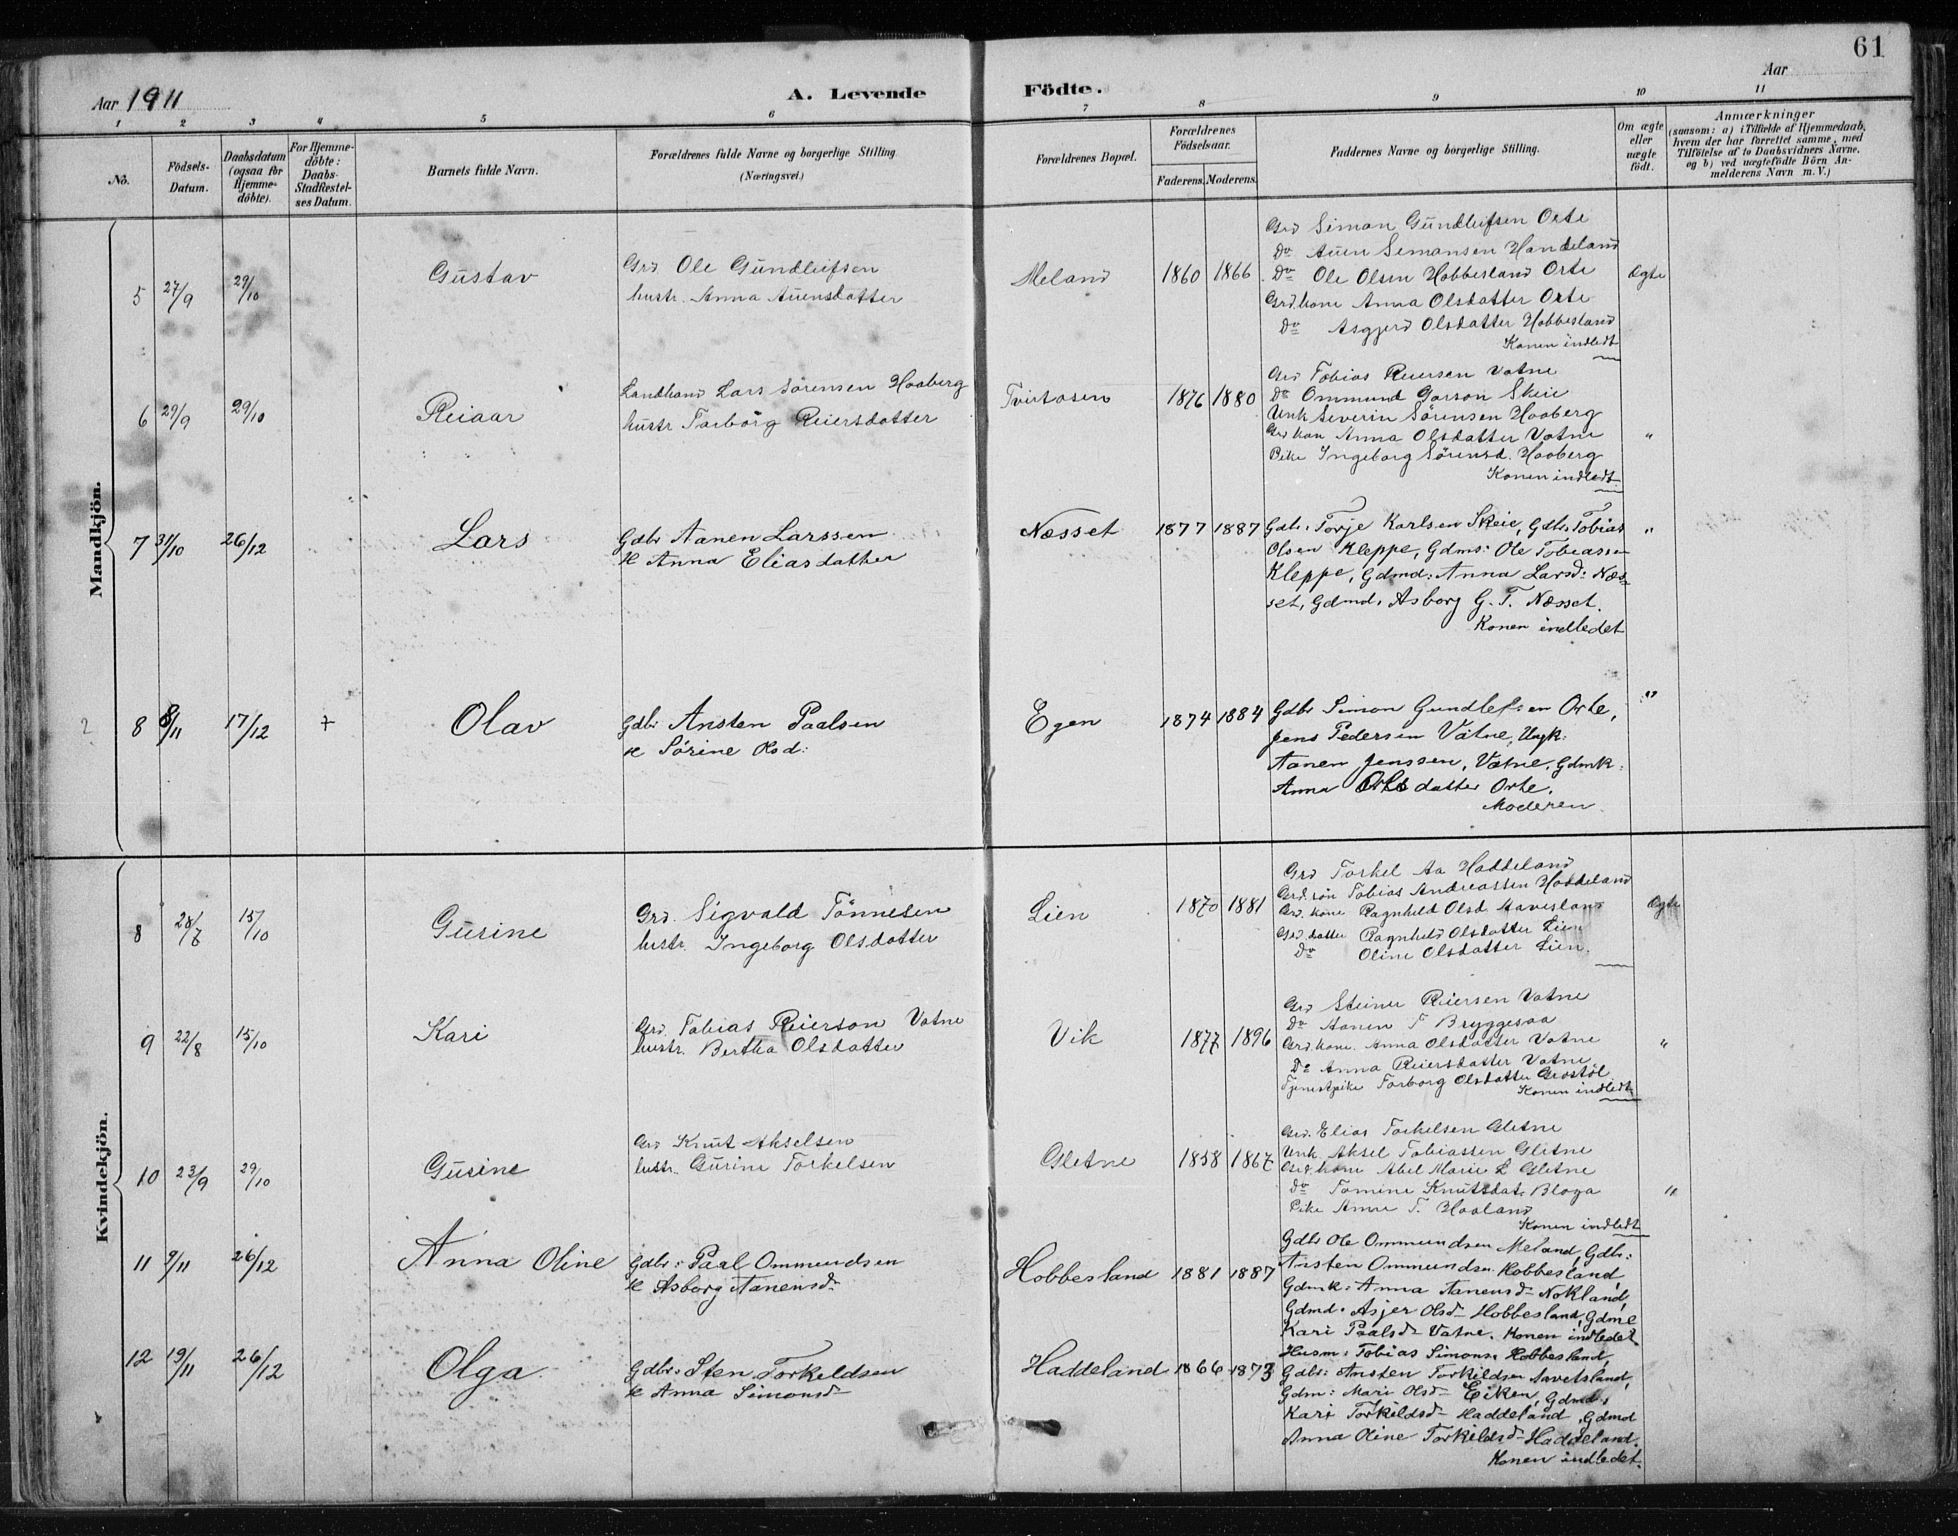 61
Aar 1911
A. Levende Födte.
Aar
1 2 3 4 5 6 7 8 9 10 11
No.
Födsels-Datum.
Daabsdatum (ogsaa for Hjemme-döbte).
For Hjemme-döbte: Daabs-Stadfæstel-ses Datum.
Barnets fulde Navn.
Forældrenes fulde Navne og borgerlige Stilling (Næringsvei.)
Forældrenes Bopæl.
Forældrenes Födselsaar.
Faderens. Moderens.
Faddernes Navne og borgerlige Stilling.
Om ægte eller uægte födt.
Anmærkninger
(saasom: a) i Tilfælde af Hjemmedaab, hvem der har forrettet samme, med Tilföielse af to Daabsvidners Navne, og b) ved uægtefödte Börn An-melderens Navn m. V.)
Mandkjön.
5 27/9 29/10 Gustav
Grd. Ole Gundleifsen
hustr. Anna Auensdatter
Meland 1860 1866
Grd Simon Gundleifsen Orte
Do Auen Simonsen Handeland
Do Ole Olsen Hobbesland Orte
Grd. kone Anna Olsdatter Orte
Do Asgjerd Olsdatter Hobbesland
Konen indledt
Ægte
6 29/9 29/10 Reiaar
Landhand Lars Sörensen Haaberg
hustr Torborg Reiersdatter
Tvirtosen 1876 1880
Grd Tobias Reiersen Vatne
Do Ommund Garson Skeie
Unk Severin Sörensen Haaberg
Grd kon Anna Olsdatter Vatne
Pike Ingeborg Sörensd. Haaberg
Konen indledt
"
7 31/10 26/12 Lars
Gdbr Aanen Larssen
& Anna Eliasdatter
Næsset 1877 1887
Gdbr: Torje Karlsen Skeie, Gdbr Tobias
Olsen Kleppe, Gdms: Ole Tobiassen
Kleppe, Gdmd: Anna Larsd: Næs-
set, Gdmd: Asborg G. T. Næsset.
Konen indledet
"
2 8 8/11 17/12 + Olav
Gdbr Ansten Paalsen
& Sörine Osd:
Egen 1874 1884
Gdbr Simon Gundlefsen Orte,
Jens Pedersen Vatne, Ungk:
Aanen Jenssen, Vatne, Gdmk:
Anna Olsdatter Orte.
Moderen.
"
Kvindekjön.
8 28/7 15/10 Gurine
Grd. Sigvald Tönnesen
hustr. Ingeborg Olsdatter
Lien 1870 1881
Grd Torkel Aa Haddeland
Grd. sön Tobias Andreassen Haddeland
Grd. kone Ragnhild Olsd Aavesland
Grd datter Ragnhild Olsdatter Lien
Do Oline Olsdatter Lien.
Ægte
9 22/8 15/10 Kari
Grd. Tobias Reierson Vatne
hustr. Bertha Olsdatter
Vik 1877 1896
Grd Steiner Reiersen Vatne
Do Aanen T Bryggesaa
Grd. kone. Anna Olsdatter Vatne
Do Anna Reiersdatter Vatne
Tjenestpike Torborg Olsdatter Grostöl
Konen indledt
"
10 23/9 29/10 Gurine
Grd Knut Akselsen
hustr. Gurine Torkelsen
Gletne 1858 1867
Grd. Elias Torkelsen Gletne
Unk Aksel Tobiassen Gletne
Grd. kone Abel Marie L Gletne
Do Tomine Knutsdat. Bloga
Pike Anne T. Haaland
Konen indledt
"
11 9/11 26/12 Anna Oline
Gdbr: Paal Ommundsen
& Asborg Aanensd-
Hobbesland 1881 1887
Gdbr Ole Ommundsen Meland, Gdbr:
Ansten Ommundsen Hobbesland,
Gdmk: Anna Aanensd- Nokland,
Gdmd: Asjer Olsd- Hobbesland, Gdme
Kari Paalsd- Vatne. Konen indledet
12 19/11 26/12 Olga
Gdbr: Sten Torkeldsen
& Anna Simonsd-
Haddeland 1866 1873
Husm: Tobias Simons. Hobbesland,
Gdbr: Ansten Torkildsen Aavetsland,
Gdm: Mari Olsd- Eiken, Gdmd:
Kari Torkildsd- Haddeland, Gdmd
Anna Oline Torkildsd- Haddeland.
Konen indledet.